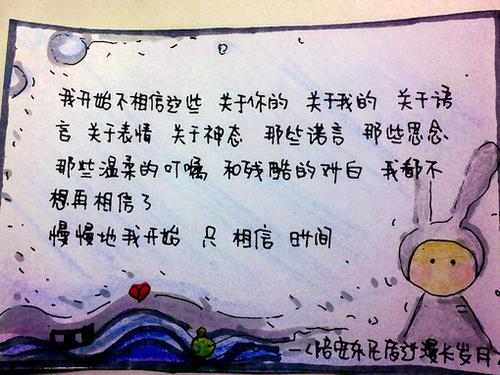 我开始不相信这些 关于你的 关于我的 关于语
言 关于表情 关于神态 那些诺言 那些思念
那些温柔的叮嘱 和残酷的对白 我都不
想再相信了
慢慢地我开始 只 相信 时间
—《陪安东尼度过漫长岁月